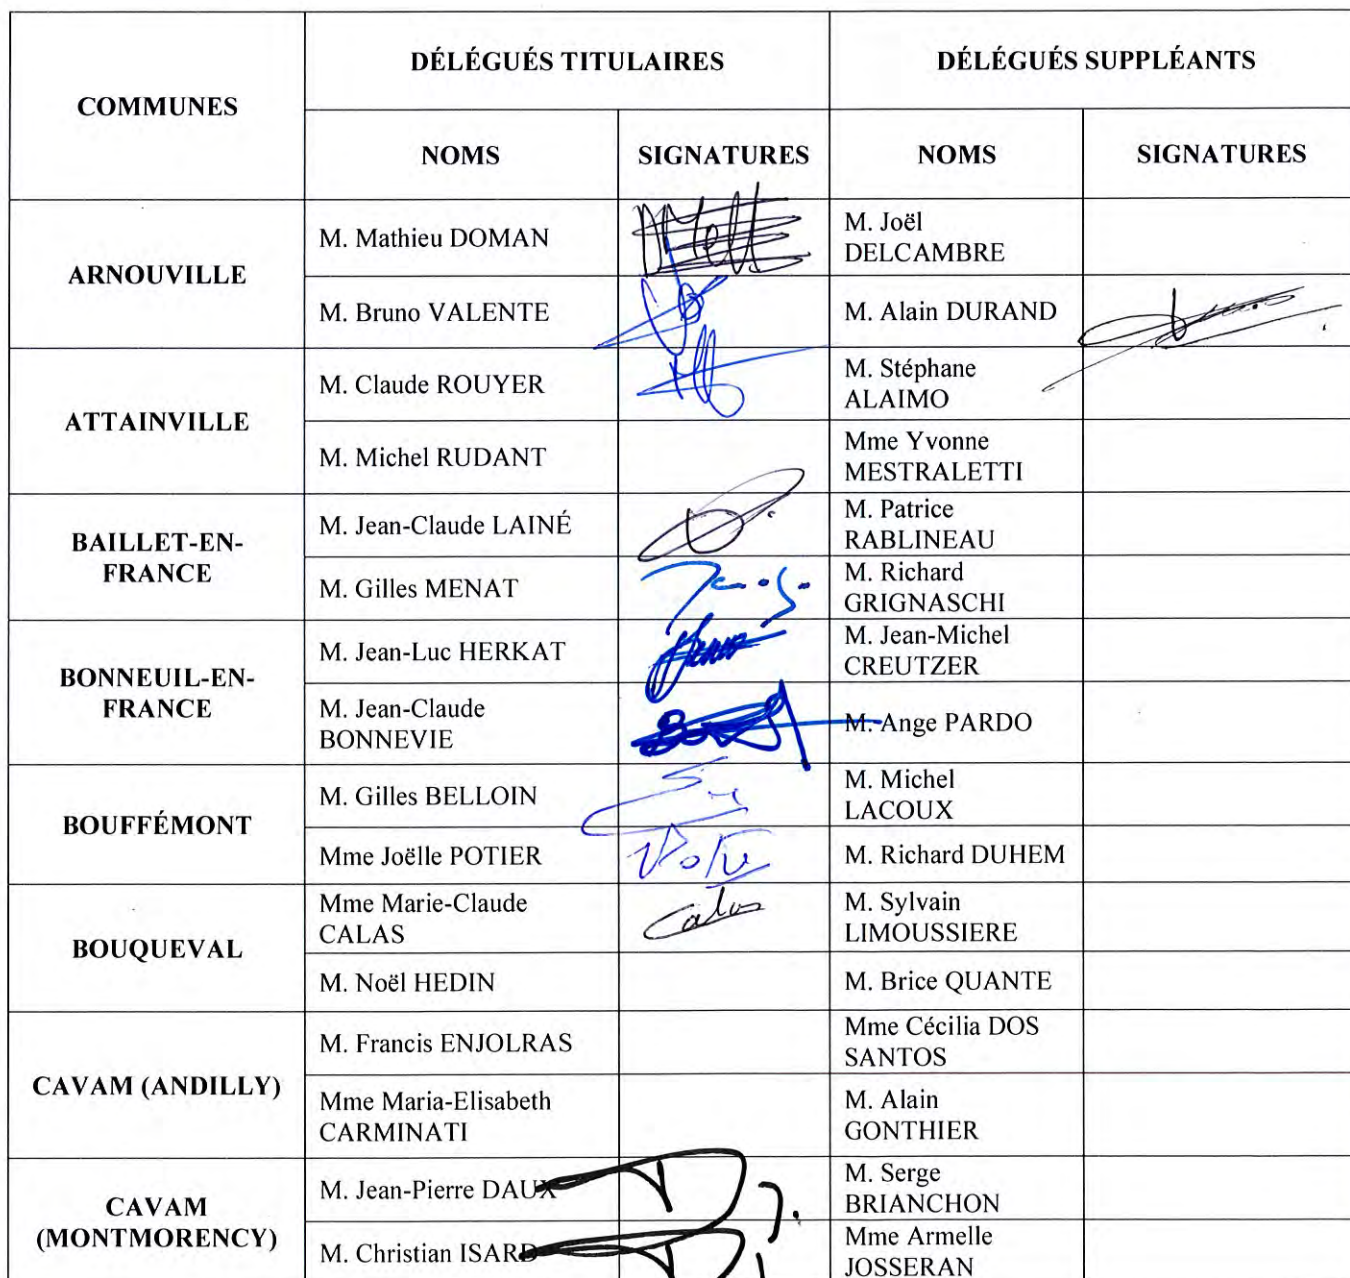 COMMUNES
DÉLÉGUÉS TITULAIRES
DÉLÉGUÉS SUPPLÉANTS
NOMS
SIGNATURES
NOMS
SIGNATURES
ARNOUVILLE
M. Mathieu DOMAN
M. Joël
DELCAMBRE
M. Bruno VALENTE
M. Alain DURAND
ATTAINVILLE
M. Claude ROUYER
M. Stéphane
ALAIMO
M. Michel RUDANT
Mme Yvonne
MESTRALETTI
BAILLET-EN-
FRANCE
M. Jean-Claude LAINÉ
M. Patrice
RABLINEAU
M. Gilles MENAT
M. Richard
GRIGNASCHI
BONNEUIL-EN-
FRANCE
M. Jean-Luc HERKAT
M. Jean-Michel
CREUTZER
M. Jean-Claude
BONNEVIE
M. Ange PARDO
BOUFFÉMONT
M. Gilles BELLOIN
M. Michel
LACOUX
Mme Joëlle POTIER
M. Richard DUHEM
BOUQUEVAL
Mme Marie-Claude
CALAS
Calas
M. Sylvain
LIMOUSSIERE
M. Noël HEDIN
M. Brice QUANTE
CAVAM (ANDILLY)
M. Francis ENJOLRAS
Mme Cécilia DOS
SANTOS
Mme Maria-Elisabeth
CARMINATI
M. Alain
GONTHIER
CAVAM
(MONTMORENCY)
M. Jean-Pierre DAUX
M. Serge
BRIANCHON
M. Christian ISARD
Mme Armelle
JOSSERAN